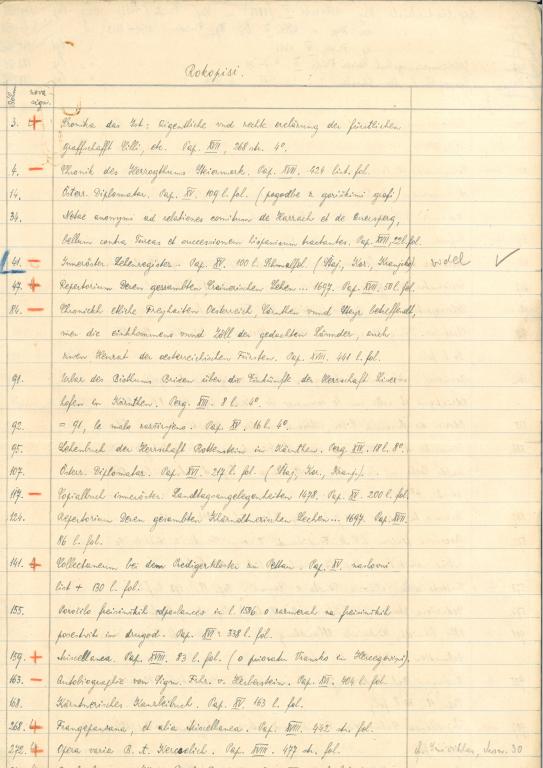 Rokopisi.
nova sign.
3. + Kronika das Ist: Eigentliche vnd rechte erclärung der fürstlichen
graffschafft Cilli, etc. Pap. XVII, 268 str. 4°.
4. – Chronik des Herzogthums Steiermark. Pap. XVII. 424 list. fol.
14. Österr. Diplomatar. Pap. XV. 109 l. fol. (pogodbe z goriškimi grofi)
34. Notae anonymi ad relationes comitum de Harrach et de Auersperg,
bellum contra Turcas et successionem hispanicam tractantes. Pap. XVIII, 22 l. fol.
41. – Inneröster. Lehenregister. Pap. XV. 100 l. Schmalfol. (Štaj., Kor., Kranjska) videl ✓
47. + Repertorium Deren gesambten Crainerischen Lehen ... 1697. Pap. XVIII. 50 l. fol.
84. – Chronickh etliche Freyhaiten Oesterreich, Cärnthen vnnd Steyr betreffendt,
mer die einkhomens vnnd Zöll der gedachten Lännder, auch
Heurat der oesterreichischen Fürsten. Pap. XVII. 441 l. fol.
91. Urbar des Bisthums Brixen über die Einkünfte der Herrschaft
hofen in Kärnthen. Perg. XIII. 8 l. 4°.
92. = 91, le malo Pap. XV. 16 l. 4°.
95. Lehenbuch der Herrschaft Rottenstein in Kärnthen. Perg. XIV. 18 l. 8°.
107. Österr. Diplomatar. Pap. XVI. 217 l. fol. (Štaj., Kor., Kranj.).
117. – Copialbuch inneröster. Landtagsangelegenheiten 1478. Pap. XV. 200 l. fol.
124. Repertorium Deren gesambten Khärndtnerischen Lechen ... 1697. Pap. XVII.
86 l. fol.
141. + Collectaneum bei dem Predigerkloster zu Pettau. Pap. XV. naslovni
list + 130 l. fol.
155. Poročilo freisinških odposlancev iz l. 1586 o razmerah na freisinških
posestvih in drugod. Pap. XVI. 338 l. fol.
159. + Miscellanea. Pap. XVIII. 83 l. fol. (o prioratu Vranskem in Hercegovini).
163. – Autobiographie von Sigm. Frhr. v. Herberstein. Pap. XVI. 404 l. fol.
168. Kärntnerisches Kanzleibuch. Pap. XV. 163 l. fol.
268. 4 Frangepanana, et alia Miscellanea. Pap. XVIII. 442 str. fol.
272. 4 Opera varia B. A. Kercselich. Pap. XVIII. 477 str. fol. 30